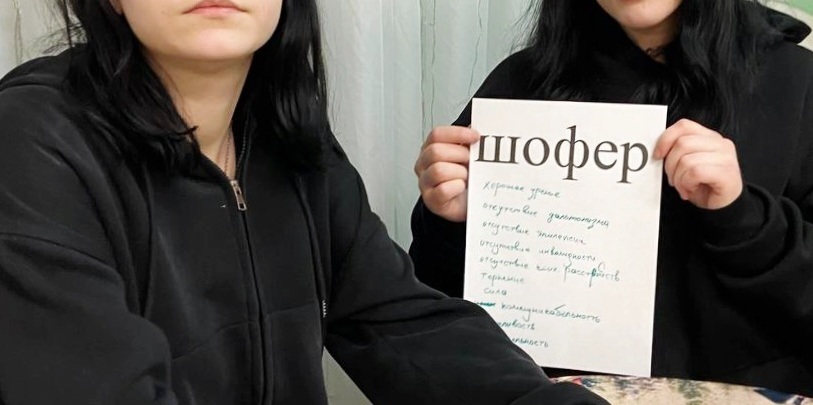 шофер
хорошее зрение
отсутствие дальтонизма
отсутствие эпилепсии
отсутствие инвалидности
отсутствие расстройств
терпение
сила
коммуникабельность